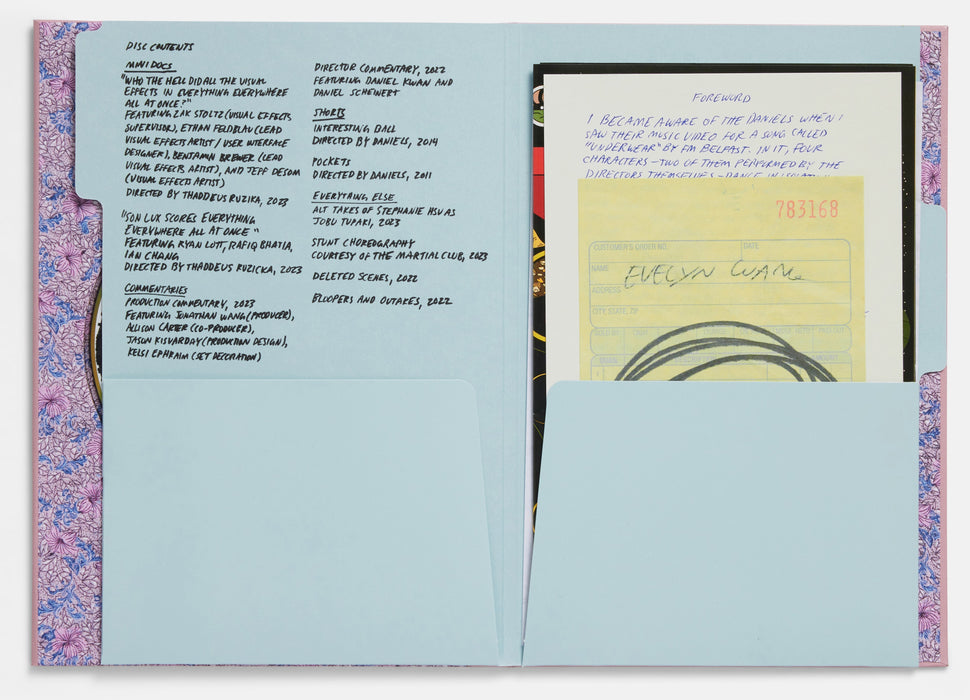 DISC CONTENTS
MINI DOCS
"WHO THE HELL DID ALL THE VISUAL
EFFECTS IN EVERYTHING EVERYWHERE
ALL AT ONCE?"
FEATURING ZAK STOLTZ (VISUAL EFFECTS
SUPERVISOR), ETHAN FELDBAU (LEAD
VISUAL EFFECTS ARTIST / USER INTERFACE
DESIGNER), BENJAMIN BREWER (LEAD
VISUAL EFFECTS ARTIST), AND JEFF DESOM
(VISUAL EFFECTS ARTIST)
DIRECTED BY THADDEUS RUZIKA, 2023
"SON LUX SCORES EVERYTHING
EVERYWHERE ALL AT ONCE"
FEATURING RYAN LOTT, RAFIQ BHATIA,
IAN CHANG
DIRECTED BY THADDEUS RUZICKA, 2023
COMMENTARIES
PRODUCTION COMMENTARY, 2023
FEATURING JONATHAN WANG (PRODUCER),
ALLISON CARTER (CO-PRODUCER),
JASON KISVARDAY (PRODUCTION DESIGN),
KELSI EPHRAIM (SET DECORATION)
DIRECTOR COMMENTARY, 2022
FEATURING DANIEL KWAN AND
DANIEL SCHEINERT
SHORTS
INTERESTING BALL
DIRECTED BY DANIELS, 2014
POCKETS
DIRECTED BY DANIELS, 2011
EVERYTHING ELSE
ALT TAKES OF STEPHANIE HSU AS
JOBU TUPAKI, 2023
STUNT CHOREOGRAPHY
COURTESY OF THE MARTIAL CLUB, 2023
DELETED SCENES, 2022
BLOOPERS AND OUTAKES, 2022
FOREWORD
I BECAME AWARE OF THE DANIELS WHEN I
SAW THEIR MUSIC VIDEO FOR A SONG CALLED
"UNDERWEAR" BY FM BELFAST. IN IT, FOUR
CHARACTERS – TWO OF THEM PERFORMED BY THE
DIRECTORS THEMSELVES – DANCE IN
783168
CUSTOMER'S ORDER NO. DATE
NAME EVELYN WANG
ADDRESS
CITY, STATE, ZIP